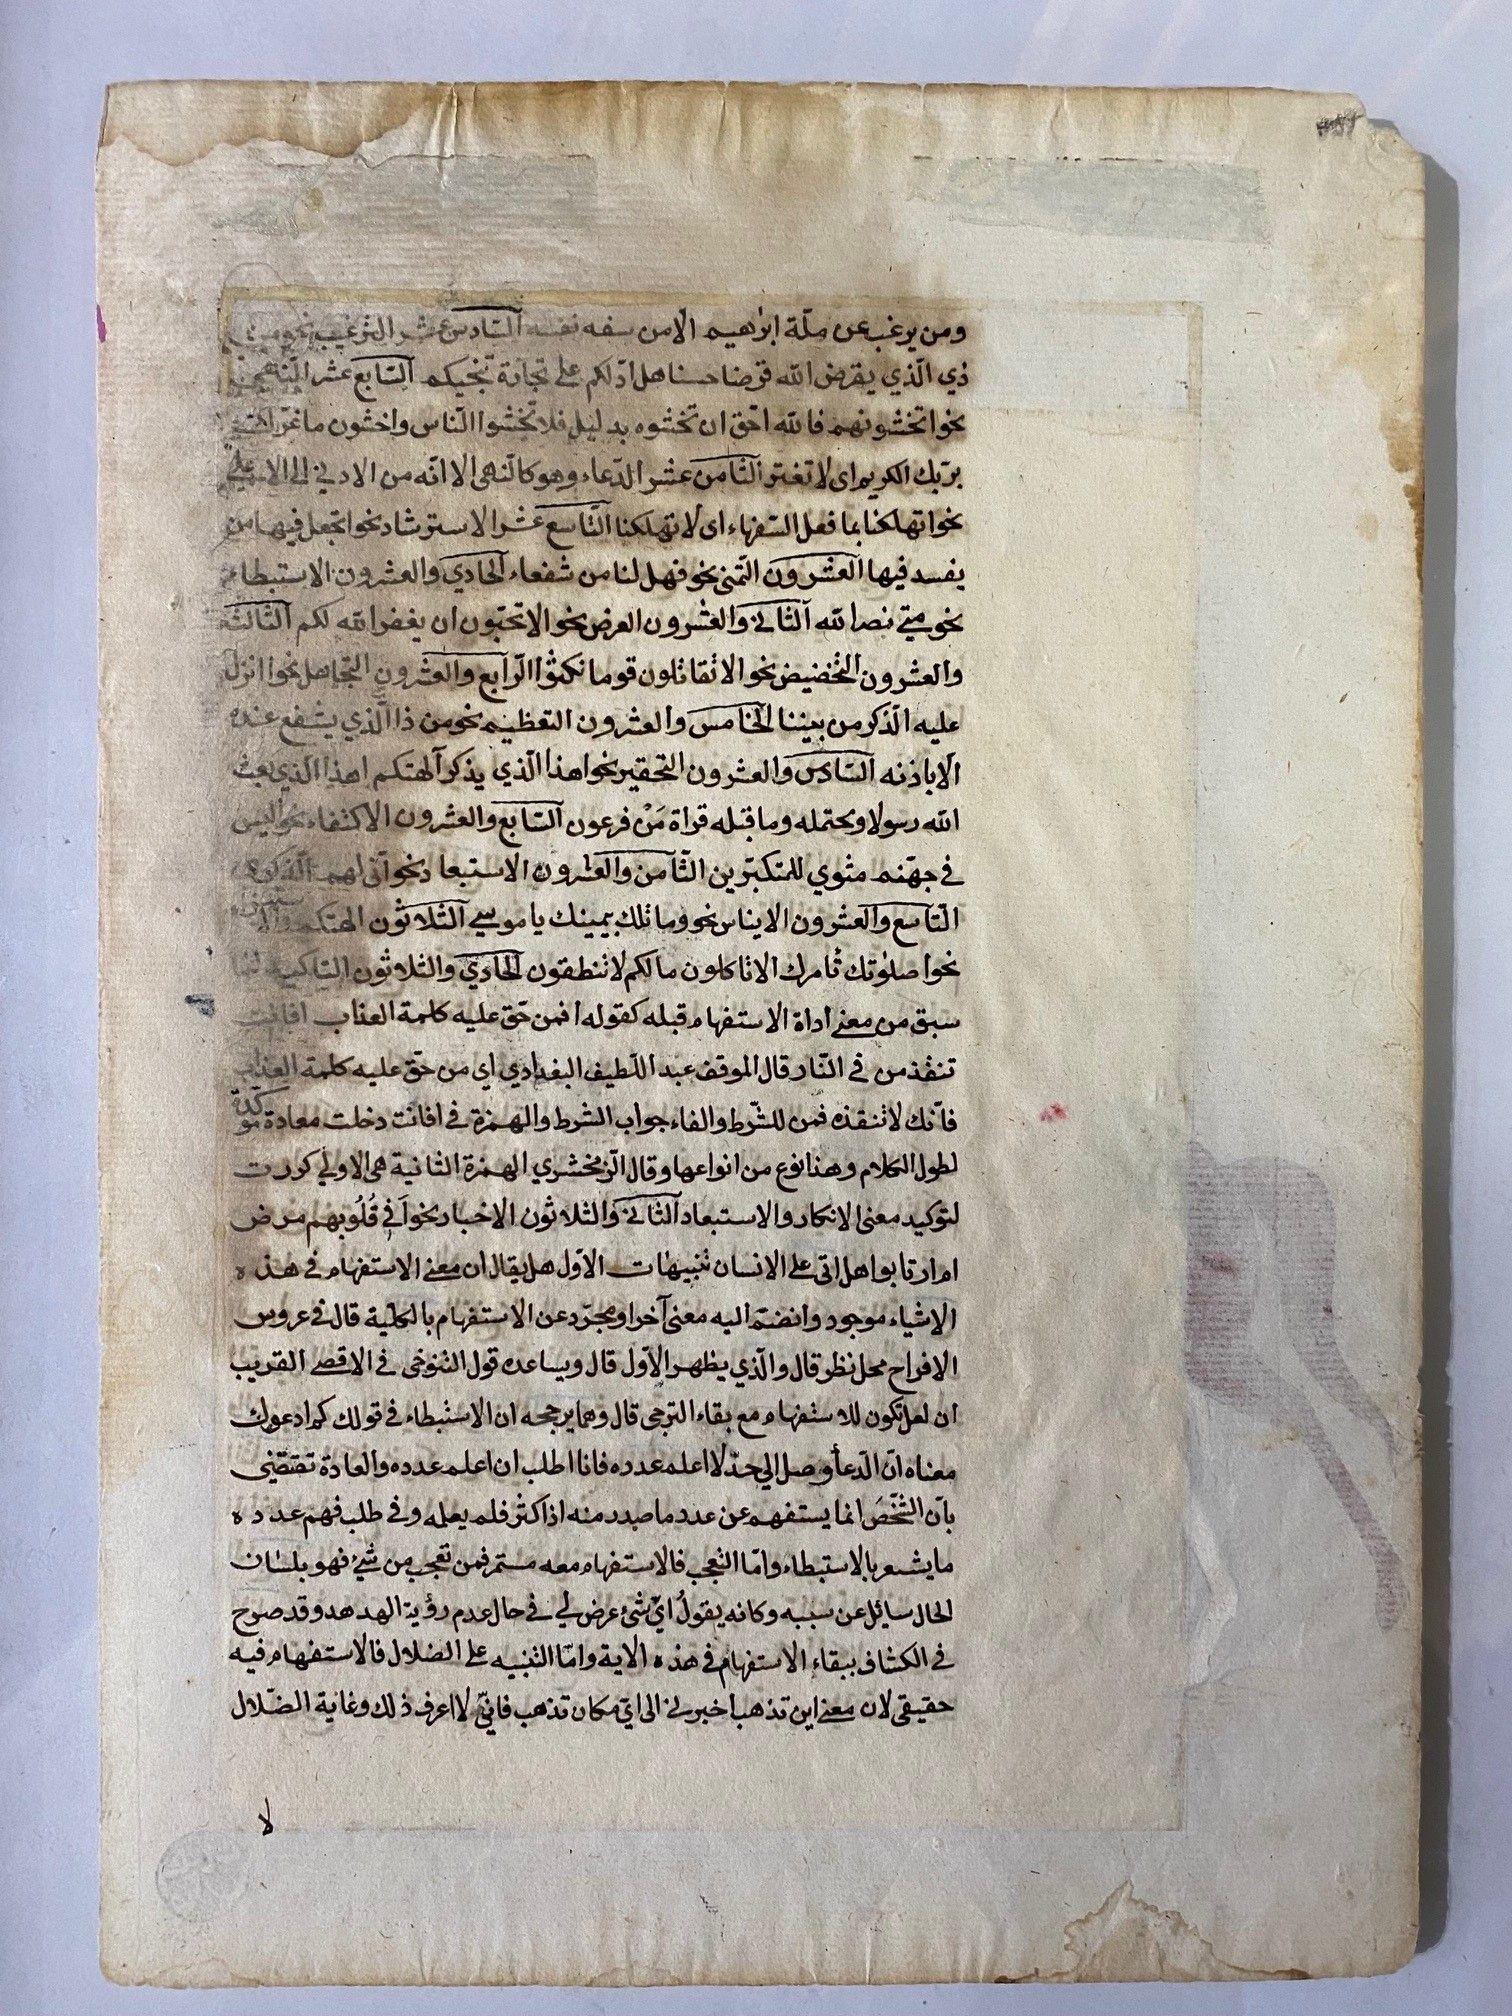 ومن يرغب عن ملّة ابراهيم الّا من سفه نفسه السّادس عشر الترغيب نحو من
ذي الّذي يقرض الله قرضا حسنا هل ادّلكم على تجارة تنجيكم السّابع عشر النّهي
نحوا تخشونهم فالله احّق ان تخشوه بدليل فلا تخشوا النّاس واخشون ما غرّك
بربّك الكريم اى لا تغتر الثّامن عشر الدّعاء وهو كالنهى الا انّه من الادني الى الاعلى
نحوا تهلكنا بما فعل السّفهاء اى لا تهلكنا التّاسع عشر الاسترشاد نحوا تجعل فيها من
يفسد فيها العشرون التّمنى نحو فهل لنا من شفعاء الحادي والعشرون الاستبطاء
نحو متى نصر الله الثّاني والعشرون العرض نحو الا تحّبون ان يغفر الله لكم الثّالثة
والعشرون التّحضيض نحو الا تقاتلون قوما نكثوا الرّابع والعشرون التّجاهل نحوا انزل
عليه الذّكر من بيننا الخامس والعشرون التعظيم نحو من ذا الّذي يشفع عنده
الّا باذنه السّادس والعشرون التحقير نحوا هذا الّذي يذكر آلهتكم اهذا الّذي بعث
الله رسولا ويحتمله وما قبله قراة مَنْ فرعون السّابع والعشرون الاكتفاء نحو أليس
في جهّنم مثوي للمتكبّرين الثّامن والعشرون الاستبعاد نحو اّنى لهم الذّكرى
التّاسع والعشرون الايناس نحو وما تلك بيمينك يا موسي الثّلاثون التهكم والاستهزاء
نحوا صلوٰتك تأمرك الا تاكلون مالكم لا تنطقون الحادي والثّلاثون التّاكيد لما
سبق من معنى اداة الاستفهام قبله كقوله افمن حّق عليه كلمة العذاب افانت
تنقذ من في النّار قال الموقف عبد اللّطيف البغدادي اي من حّق عليه كلمة العذاب
فانّك لا تنقذه فمن للشّرط والفاء جواب الشرط والهمزة في افانت دخلت معادة موكّدة
لطول الكلام وهذا نوع من انواعها وقال الزّمخشري الهمزة الثانية هى الاولي كررت
لتوكيد معنى الانكار والاستبعاد الثّاني والثلاثون الاخبار نحو اَفي قُلُوبهم مرض
ام ارتابوا هل اتى على الانسان تنبيهات الاوّل هل يقال ان معنى الاستفهام في هذه
الاشياء موجود وانضّم اليه معنى آخر او مجرّد عن الاستفهام بالكلية قال في عروس
الافراح محل نظر قال والّذي يظهر الاوّل قال ويساعده قول التنوخى في الاقصى القريب
ان لعل تكون للاستفهام مع بقاء الترجى قال ومما يرجحه ان الاستبطاء في قولك كم ادعوك
معناه انّ الدّعأ وصل الي حدّ لا اعلم عدده فانا اطلب ان اعلم عدده والعادة تقتضّى
بانّ الشّخصَ انما يستفهم عن عدد ما صدر منه اذا كثر فلم يعلمه وفي طلب فهم عدده
ما يشعر بالاستبطاء وامّا التعجب فالاستفهام معه مستمر فمن تعجب من شئ فهو بلسان
الحال سائيل عن سببه وكانه يقولُ ايّ شئ عرض لي في حال عدم رؤية الهدهد وقد صرح
في الكشاف ببقاء الاستفهام في هذه الاية وامّا التنبيه على الضلال فالاستفهام فيه
حقيقى لان معنى اين تذهب اخبرني الى ايّ مكان تذهب فانّي لا اعرف ذلك وغاية الضّلال
لا